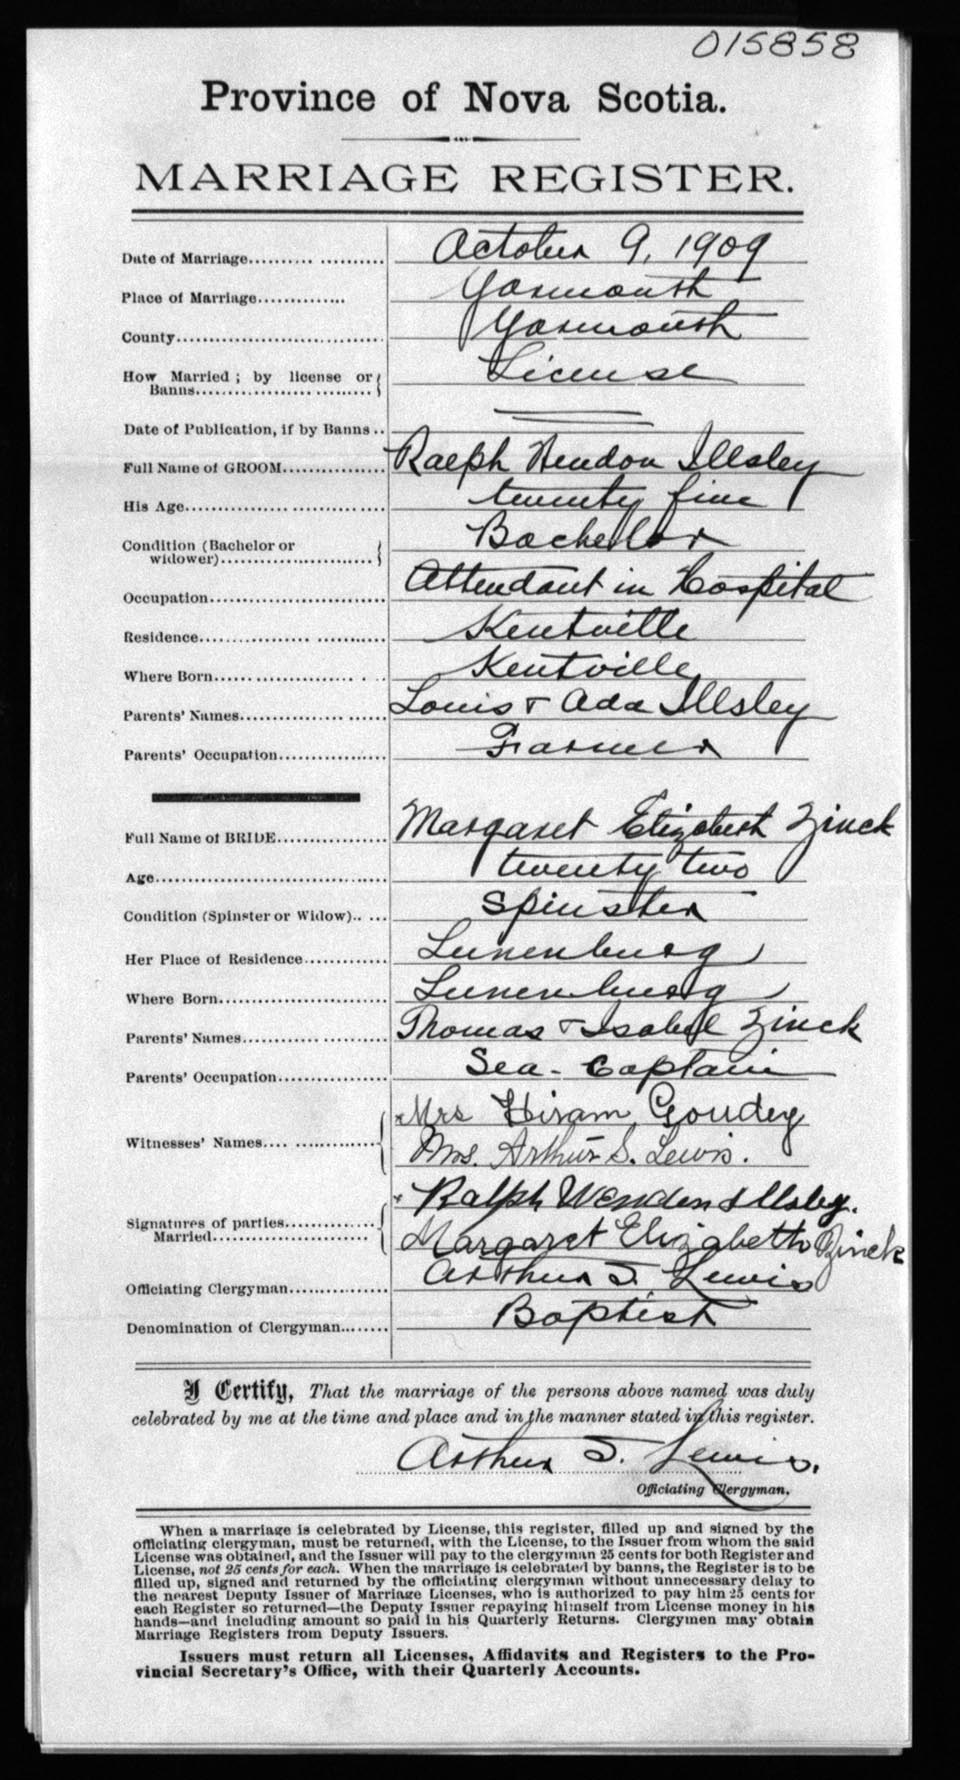 015858
Province of Nova Scotia.
MARRIAGE REGISTER.
Date of Marriage.................... October 9, 1909
Place of Marriage.............. Yarmouth
County................................ Yarmouth
How Married ; by license or
Banns........................... License
Date of Publication, if by Banns ..
Full Name of GROOM............... Ralph Illsley
His Age............................... twenty five
Condition (Bachelor or
widower)....................... Bachelor
Occupation........................... Attendant in Hospital
Residence........................... Kentville
Where Born....................... Kentville
Parents' Names..................... Louis & Ada Illsley
Parents' Occupation................ Farmer
Full Name of BRIDE............... Margaret Elizabeth Zinck
Age................................... twenty two
Condition (Spinster or Widow).. ... Spinster
Her Place of Residence............ Lunenburg
Where Born........................ Lunenburg
Parents' Names..................... Thomas & Isabel Zinck
Parents' Occupation................ Sea-Captain
Mrs Hiram Goudey
Witnesses' Names.... ............
Mrs. Arthur S. Lewis.
Signatures of parties............. Ralph Wenden Illsley.
Married........................ Margaret Elizabeth Zinck
Officiating Clergyman............. Arthur S. Lewis
Denomination of Clergyman........ Baptist
I Certify, That the marriage of the persons above named was duly
celebrated by me at the time and place and in the manner stated in this register.
Arthur S. Lewis.
Officiating Clergyman.
When a marriage is celebrated by License, this register, filled up and signed by the
officiating clergyman, must be returned, with the License, to the Issuer from whom the said
License was obtained, and the Issuer will pay to the clergyman 25 cents for both Register and
License, not 25 cents for each. When the marriage is celebrated by banns, the Register is to be
filled up, signed and returned by the officiating clergyman without unnecessary delay to
the nearest Deputy Issuer of Marriage Licenses, who is authorized to pay him 25 cents for
each Register so returned—the Deputy Issuer repaying himself from License money in his
hands—and including amount so paid in his Quarterly Returns. Clergymen may obtain
Marriage Registers from Deputy Issuers.
Issuers must return all Licenses, Affidavits and Registers to the Pro-
vincial Secretary's Office, with their Quarterly Accounts.